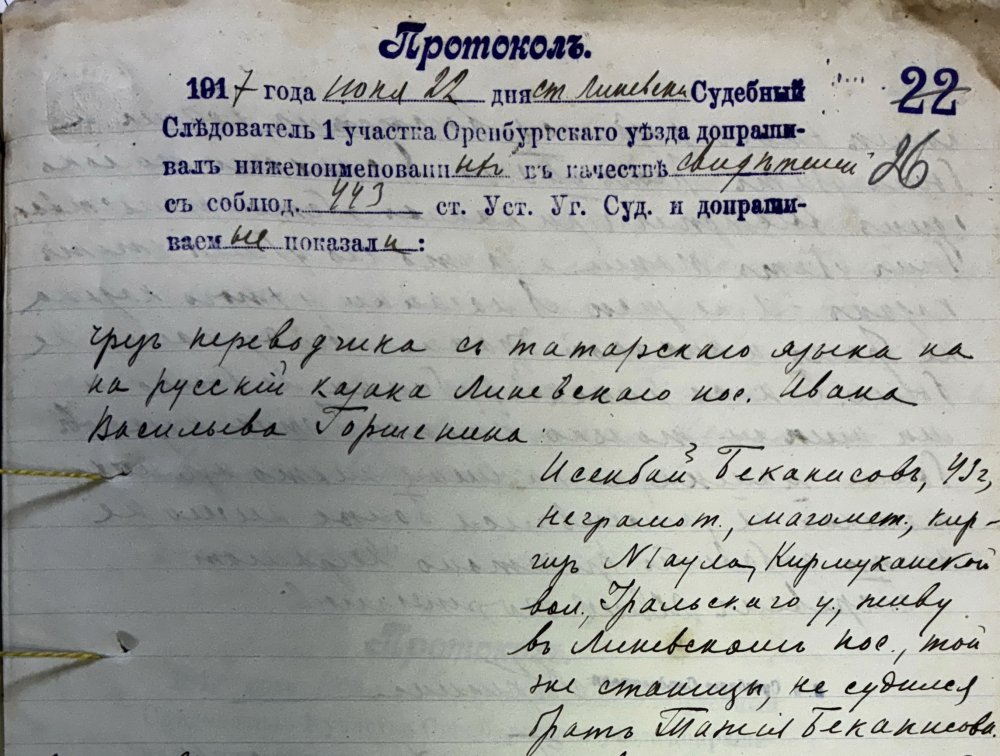 Протоколъ.
1917 года июня 22 дня ст. Линевска Судебный
22
Слѣдователь 1 участка Оренбургскаго уѣзда допраши-
валъ нижепоименованныхъ въ качествѣ свидѣтелей
26
съ соблюд. 443 ст. Уст. Уг. Суд. и допраши-
ваемые показали:
чрезъ переводчика съ татарскаго языка на
на русскій казака Линевскаго пос. Ивана
Васильева Горшенина:
Исенбай Беканисовъ, 43 г,
неграмот., магомет., кир-
гизъ N 1 аула, Кирмуханской
вол., Уральскаго у., живу
въ Линевскомъ пос., той
же станицы, не судился
братъ Беканисова.